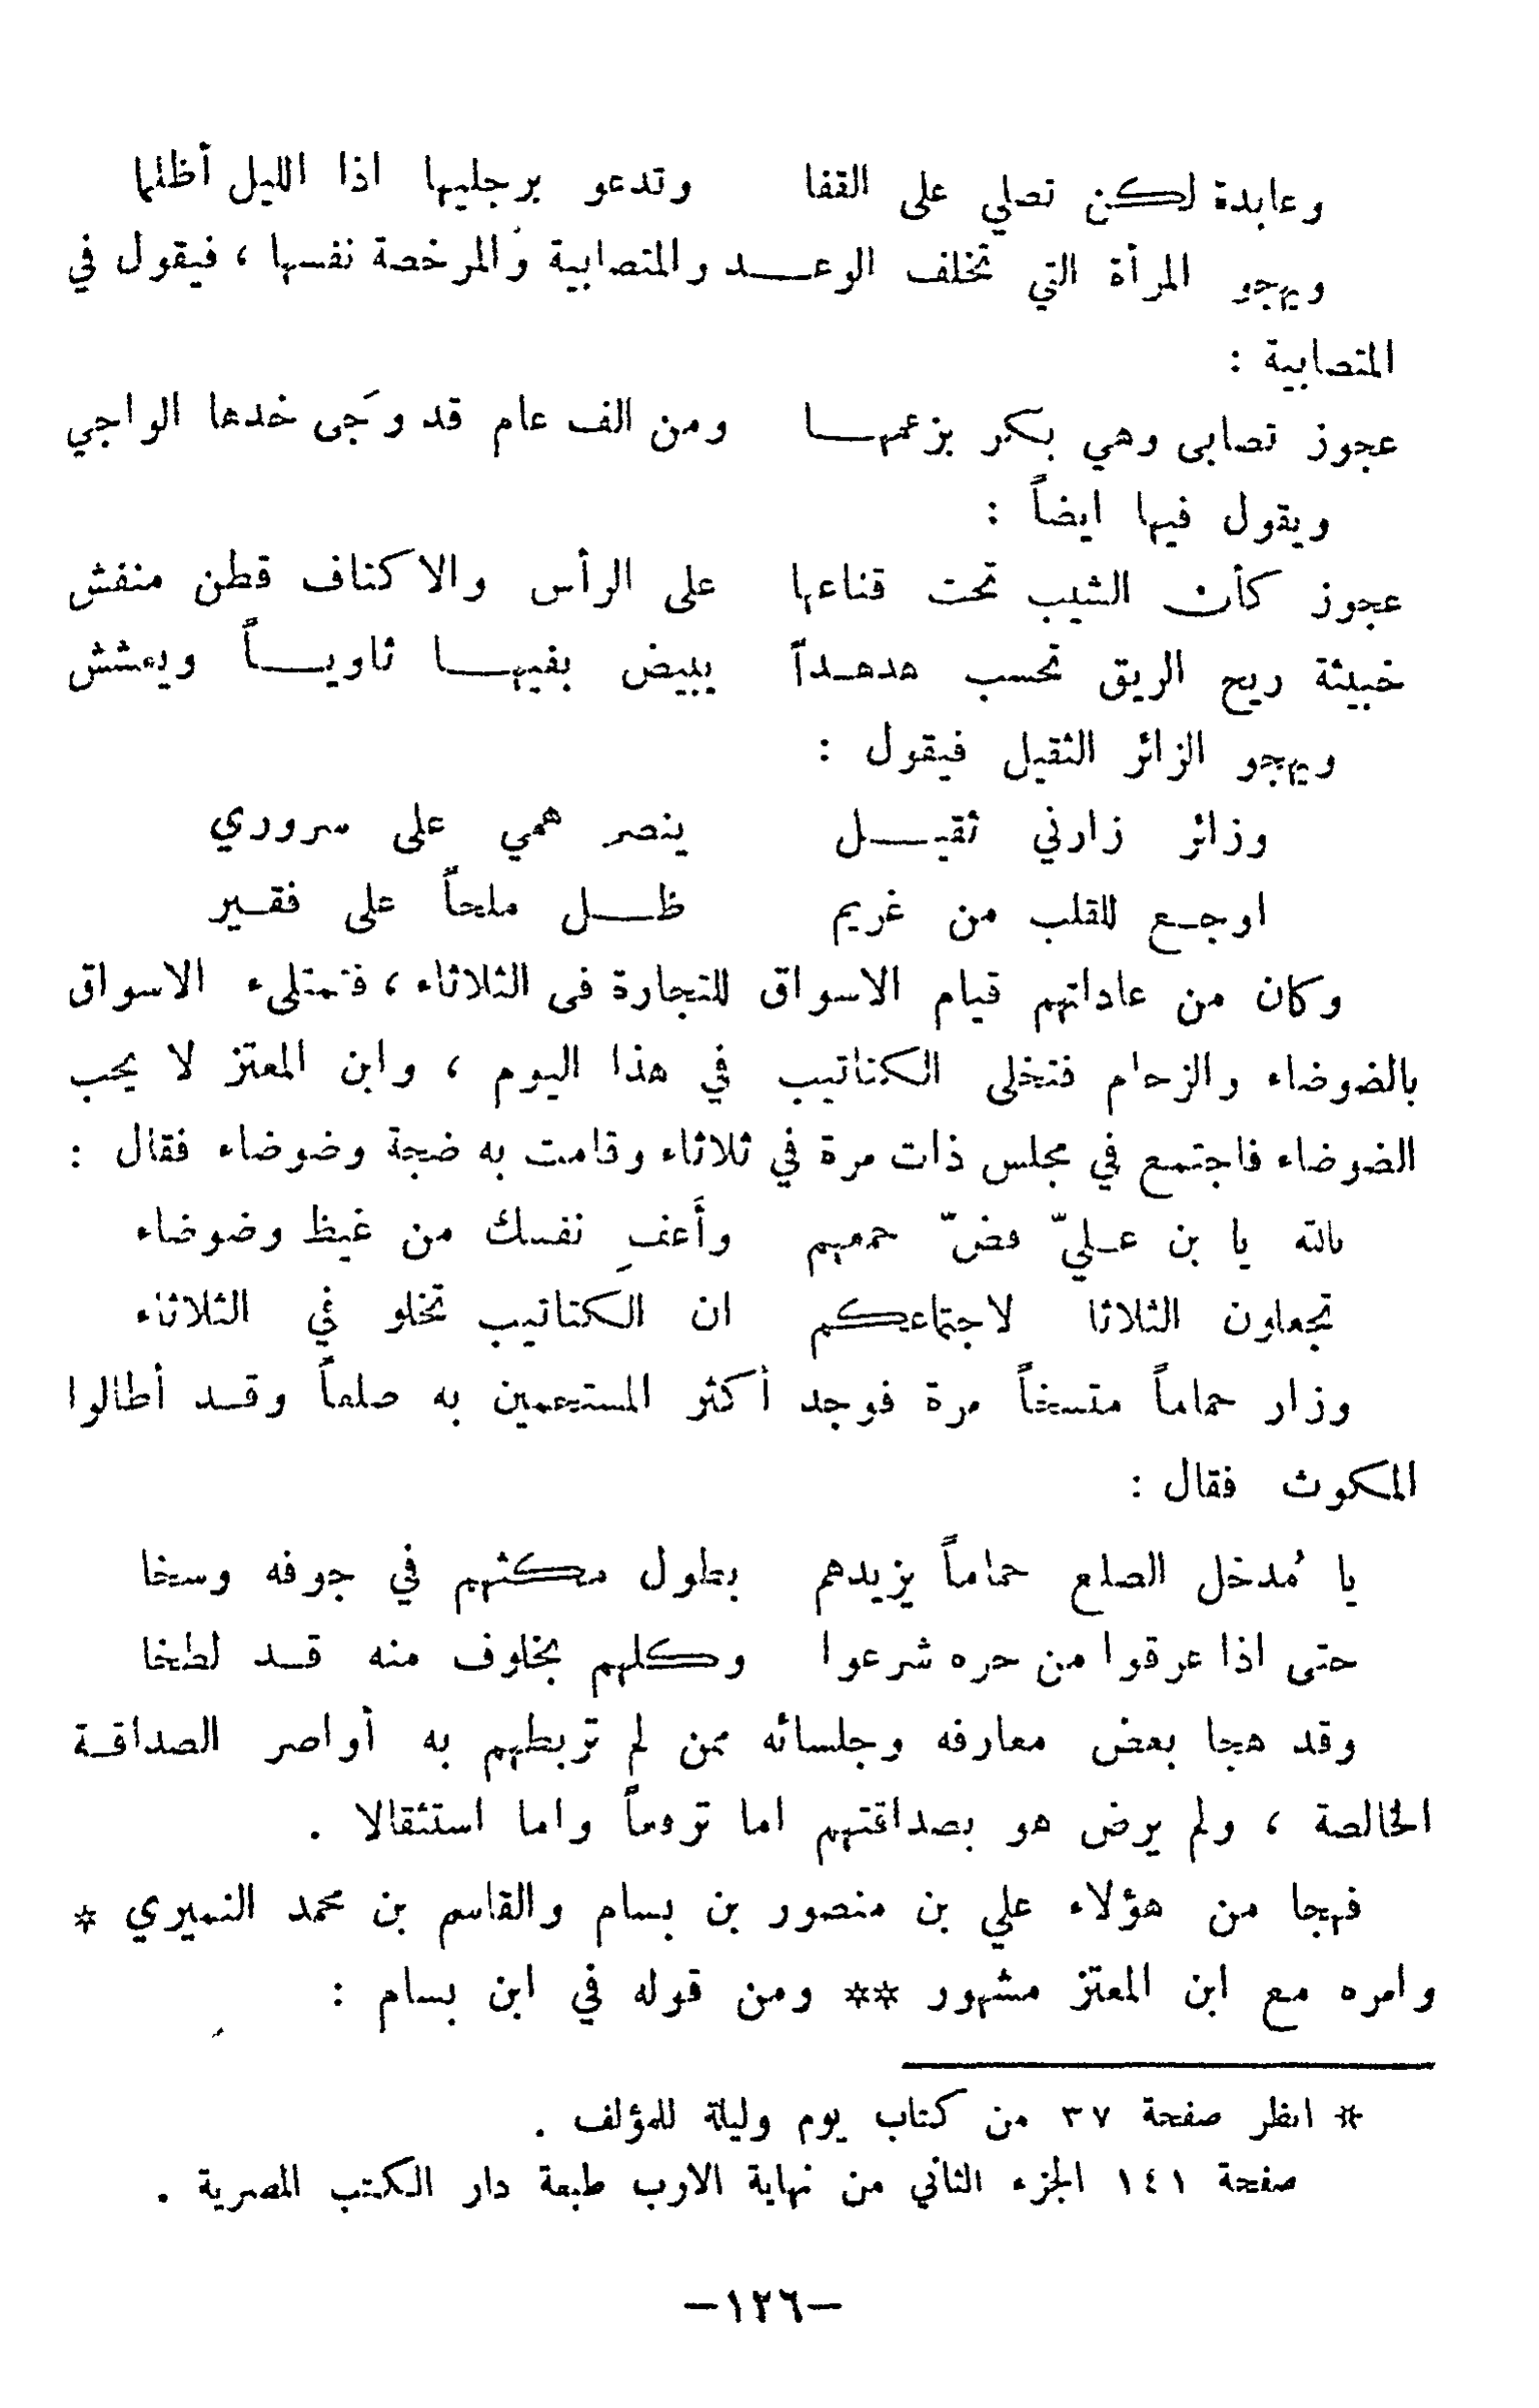 وعابدة لكن تصلي على القفا وتدعو برجليها اذا الليل أظلما
ويهجو المرأة التي تخلف الوعد والمتصابية والمرخصة نفسها ، فيقول في
المتصابية :
عجوز تصابى وهي بكر بزعمها ومن الف عام قد وَجى خدها الواجي
ويقول فيها ايضاً :
عجوز كأن الشيب تحت قناعها على الرأس والاكتاف قطن منفش
خبيثة ريح الريق تحسب هدهداً يبيض بفيها ثاوياً ويعشش
ويهجو الزائر الثقيل فيقول :
وزائر زارني ثقيل ينصر همي على سروري
اوجع للقلب من غريم ظل ملحاً على فقير
وكان من عاداتهم قيام الاسواق للتجارة فى الثلاثاء ، فتمتلىء الاسواق
بالضوضاء والزحام فتخلى الكتاتيب في هذا اليوم ، وابن المعتز لا يحب
الضوضاء فاجتمع في مجلس ذات مرة في ثلاثاء وقامت به ضجة وضوضاء فقال :
بالله يا بن عليّ فضّ جمعهم وأعفِ نفسك من غيظ وضوضاء
تجعلون الثلاثا لاجتماعكم ان الكتاتيب تخلو في الثلاثاء
وزار حماماً متسخاً مرة فوجد أكثر المستحمين به صلعاً وقد أطالوا
المكوث فقال :
يا مُدخل الصلع حماماً يزيدهم بطول مكثهم في جوفه وسخا
حتى اذا عرقوا من حره شرعوا وكلهم بخلوف منه قد لطخا
وقد هجا بعض معارفه وجلسائه ممن لم تربطهم به أواصر الصداقة
الخالصة ، ولم يرض هو بصداقتهم اما تروعاً واما استثقالا .
فهجا من هؤلاء علي بن منصور بن بسام والقاسم بن محمد النميري *
وامره مع ابن المعتز مشهور ** ومن قوله في ابن بسام :
* انظر صفحة ٣٧ من كتاب يوم وليلة للمؤلف .
صفحة ١٤١ الجزء الثاني من نهاية الارب طبعة دار الكتب المصرية .
—١٢٦—